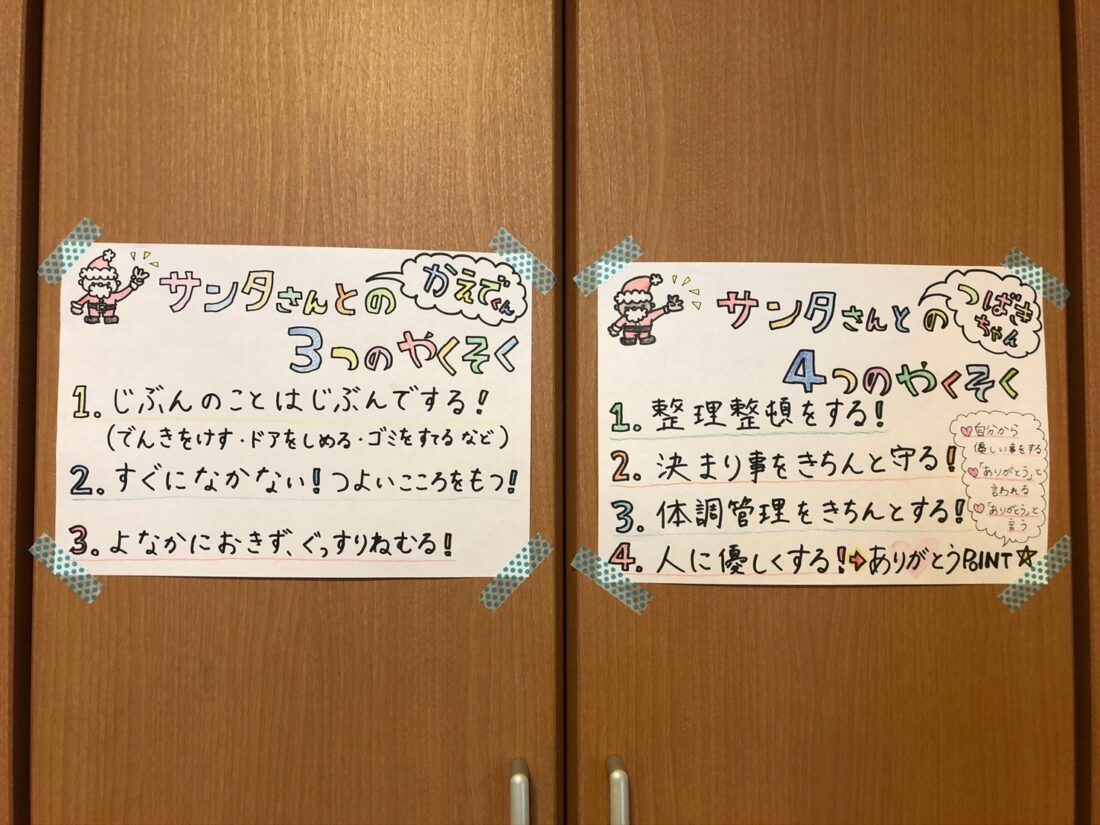 サンタさんとの
かえでくん
3つのやくそく
1. じぶんのことはじぶんでする!
(でんきをけす・ドアをしめる・ゴミをすてるなど)
2. すぐになかない! つよいこころをもつ!
3. よなかにおきず、ぐっすりねむる!
サンタさんとの
つばき
ちゃん
4つのやくそく
1. 整理整頓をする!
2. 決まり事をきちんと守る!
3. 体調管理をきちんとする!
4. 人に優しくする!➡ありがとうPOINT☆
♡自分から
優しい事をする
♡「ありがとう」と
言われる
♡「ありがとう」と
言う